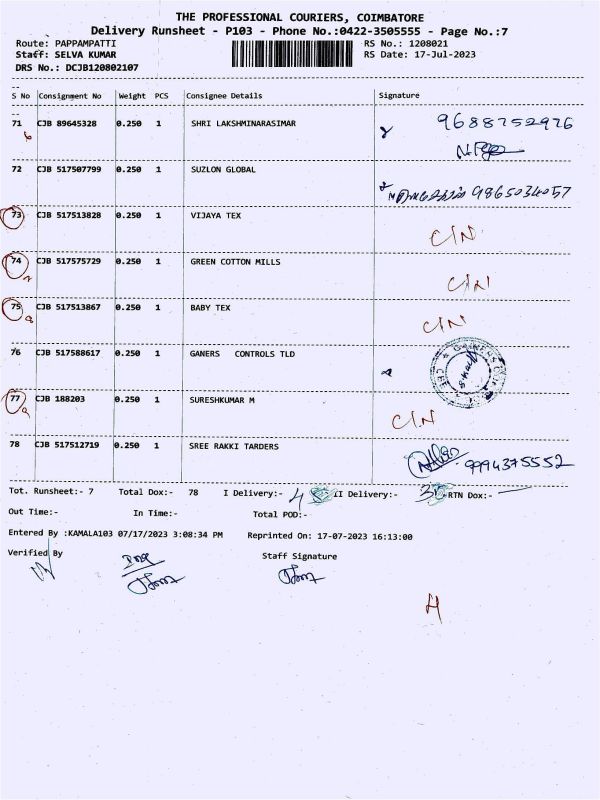 THE PROFESSIONAL COURIERS, COIMBATORE
Delivery Runsheet - P103 - Phone No.:0422-3505555 - Page No.:7
Route: PAPPAMPATTI RS No.: 1208021
Staff: SELVA KUMAR RS Date: 17-Jul-2023
DRS No.: DCJB120802107
S No Consignment No Weight PCS Consignee Details Signature
71 CJB 89645328 0.250 1 SHRI LAKSHMINARASIMAR 9688752976
72 CJB 517507799 0.250 1 SUZLON GLOBAL 9865034057
73 CJB 517513828 0.250 1 VIJAYA TEX C/N
74 CJB 517575729 0.250 1 GREEN COTTON MILLS C/N
75 CJB 517513867 0.250 1 BABY TEX C/N
76 CJB 517588617 0.250 1 GANERS CONTROLS TLD
77 CJB 188203 0.250 1 SURESHKUMAR M C/N
78 CJB 517512719 0.250 1 SREE RAKKI TARDERS 9994375552
Tot. Runsheet:- 7 Total Dox:- 78 I Delivery:- II Delivery:- RTN Dox:-
Out Time:- In Time:- Total POD:-
Entered By :KAMALA103 07/17/2023 3:08:34 PM Reprinted On: 17-07-2023 16:13:00
Verified By Staff Signature